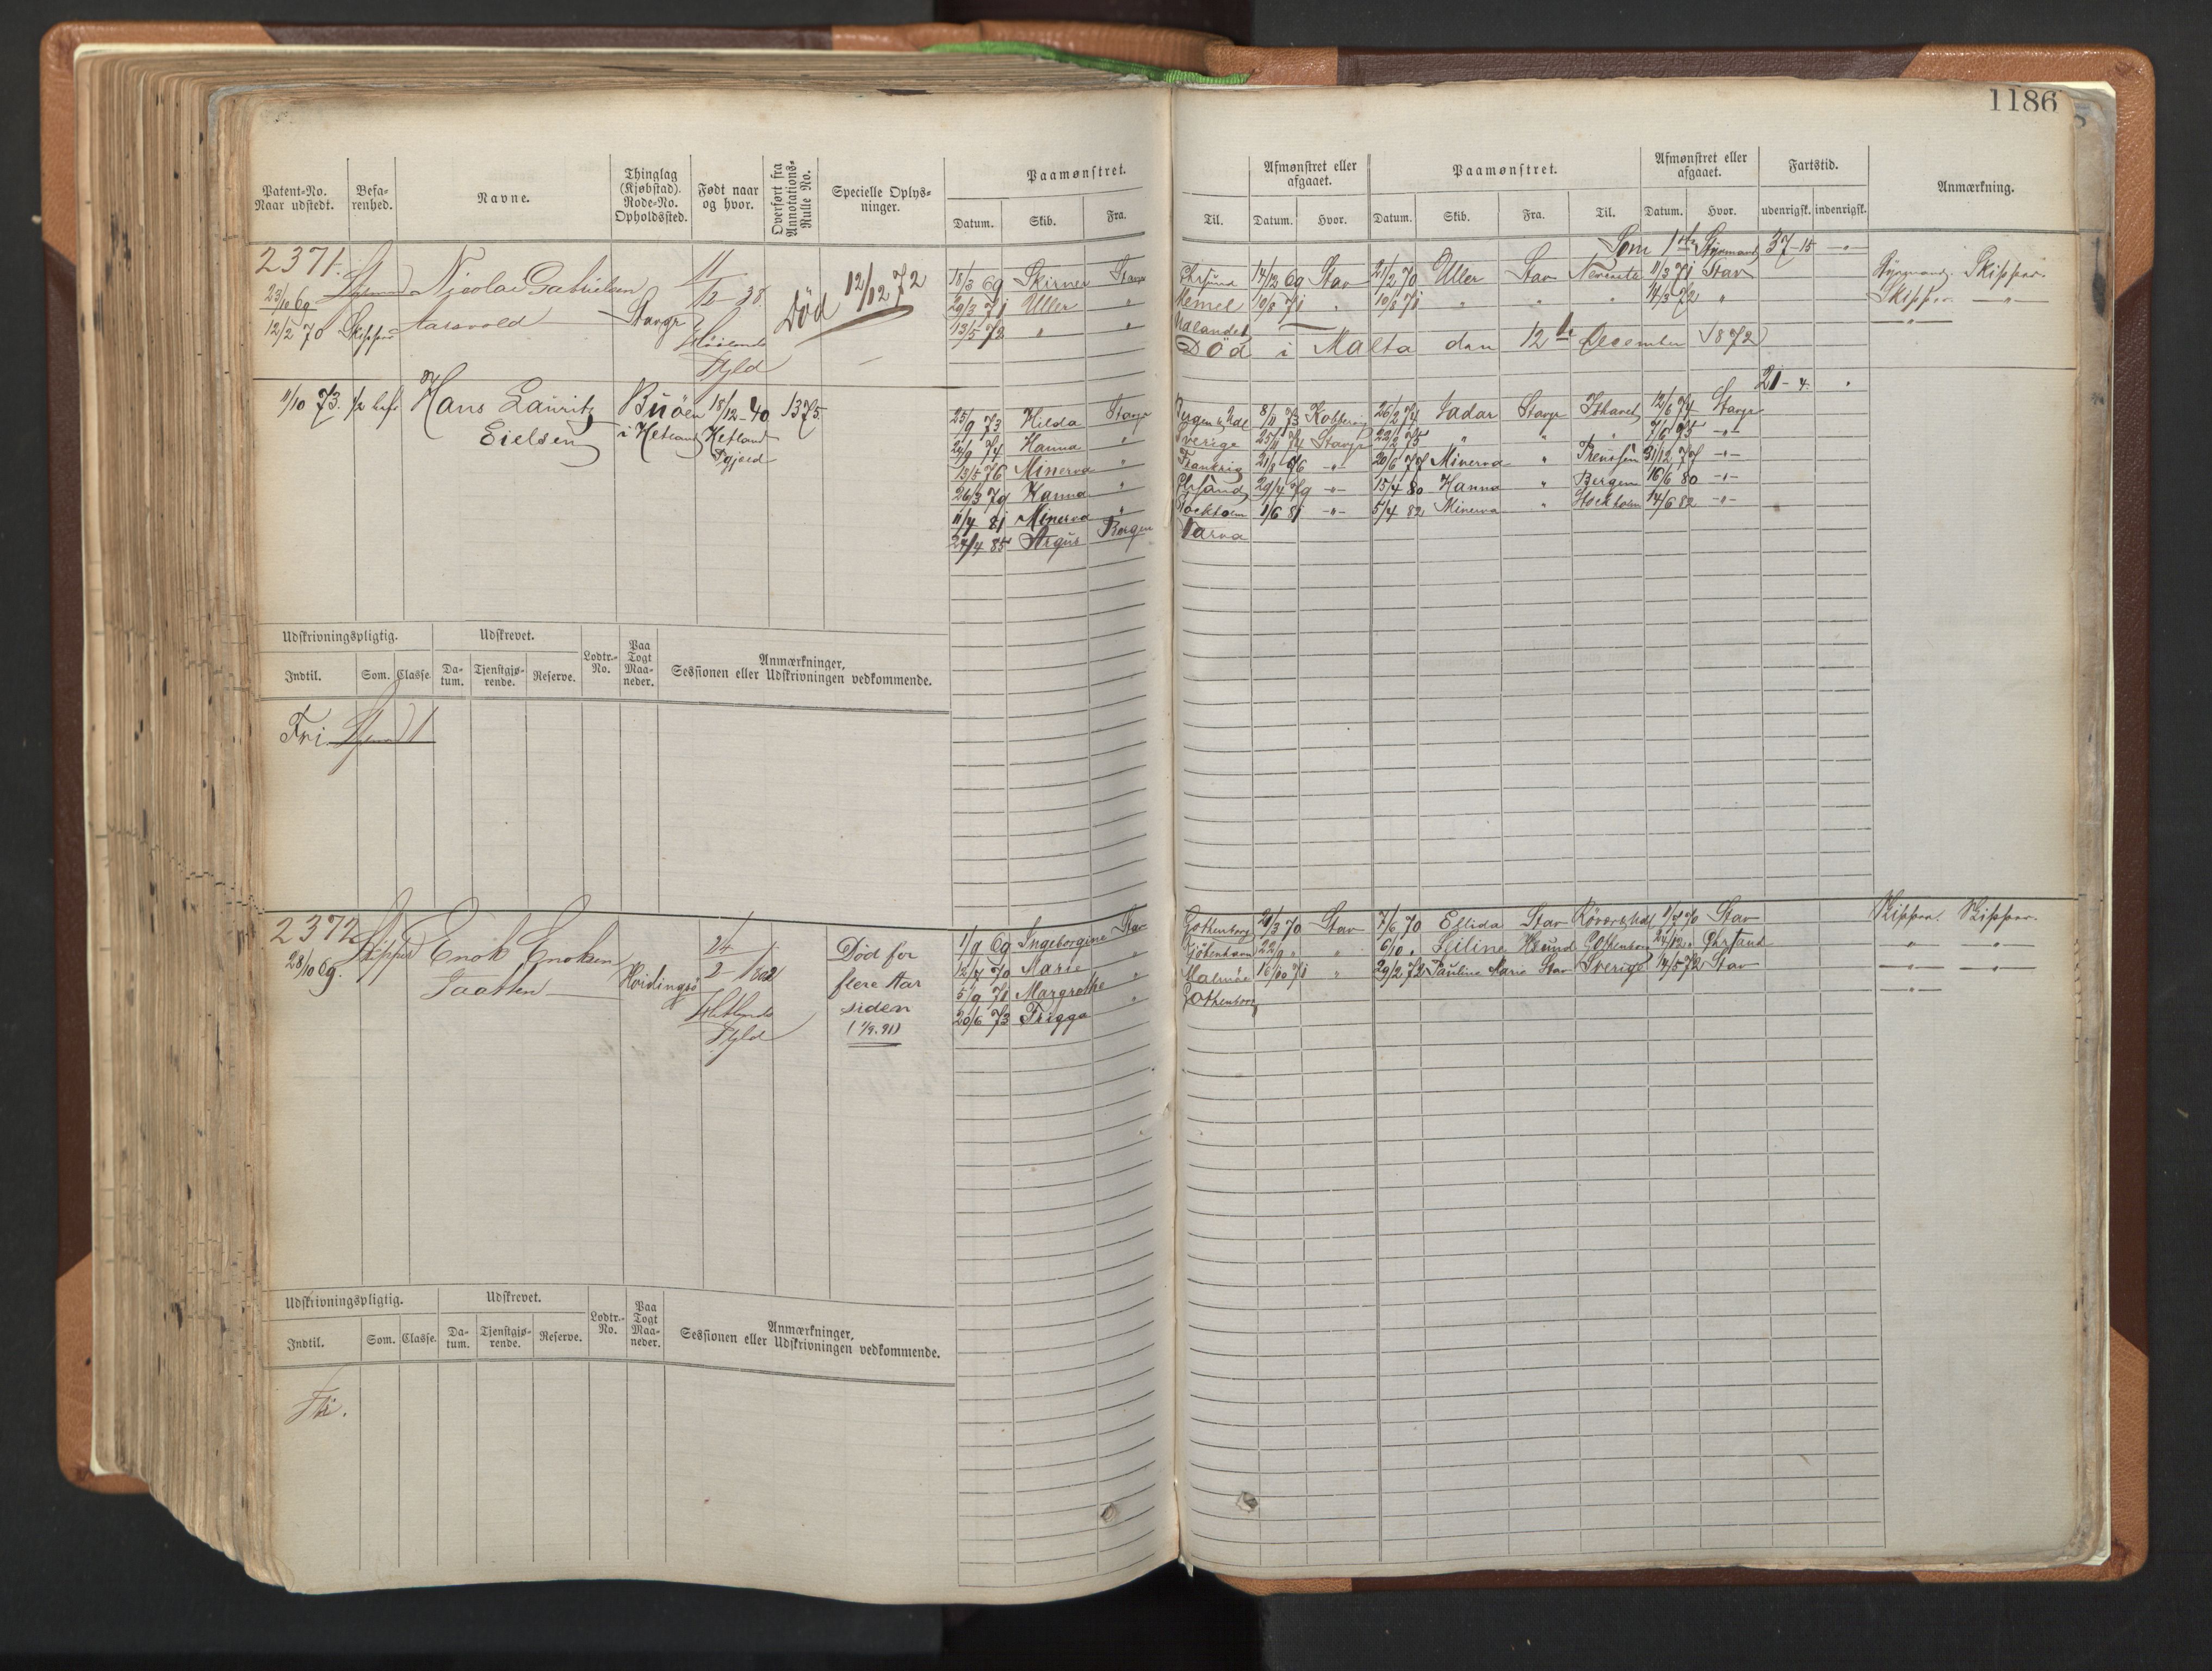 1186
Patent-No. Naar udstedt.
Befa-renhed.
Navne.
Thinglag (Kjøbstad). Rode-No. Opholdssted.
Født naar og hvor.
Overført fra Annotations-Rulle No.
Specielle Oplys-ninger.
Paamønstret.
Datum. Skib. Fra. Til.
Afmønstret eller afgaaet.
Datum. Hvor.
Paamønstret.
Datum. Skib. Fra. Til.
Afmønstret eller afgaaet.
Datum. Hvor.
Fartstid.
udenrigsk. indenrigsk.
Anmærkning.
Som 1ste Styrmand 37-15 -"-
2371.
23/10 69
12/2 70 Skipper
Nicolai Gabrielsen
Aarsvold
Stavgr
11/12 38
Høilands
Død 12/12 72
18/3 69 Skirner Stavgr Chrsund 14/12 69 Stav 21/2 70 Uller Stav 11/3 71 Stav Styrmand. Skipper.
29/3 71 Uller " Memel 10/8 71 " 10/8 71 " " " 14/3 72 " Skipper -"-
13/5 72 " " Udlandet -"-
Død i Malta den 12te December 1872
21-4. "
11/10 73. Hans Lauritz Eielsen
Buøen i Hetland
18/12-40 Hetland
1375.
25/9 73 Hilda Stavgr Bergen & Udl 8/11 73 26/2 74 Jadar Stavgr Ishavet 12/6 74 Stavgr
21/9 74 Hanna " Sverige 25/11 74 Stavgr 22/2 75 " " " 7/6 75 -"-
13/5 76 Minerva " Frankrig 21/8 76 -"- 20/6 77 Minerva " Preussen 31/12 77 -"-
26/3 79 Hanna " Chrsand 29/4 79 -"- 15/4 80 Hanna " Bergen 16/6 80 -"-
11/4 81 Minerva " Stockholm 1/6 81 -"- 5/4 82 Minerva " Stockholm 14/6 82 -"-
24/4 85 Argus Bergen Narva
Udskrivningspligtig.
Udskrevet.
Lodtr.-No.
Paa Togt Maa-neder.
Anmærkninger, Sessionen eller Udskrivningen vedkommende.
Indtil. Som. Classe. Da-tum. Tjenstgjø-rende. Reserve.
Fri.
2372
28/10 69.
Skipper
Enok Enoksen
Taatten
Høidingsø
24/2 1802
Hetlands
Død for
flere Aar
siden
(1/9.91)
1/9 69 Ingeborgine Stav Gothenborg 21/3 70 Stav 7/6 70 Ellida Stav 11/7 70 Stav Skipper. Skipper.
12/7 70 Marie " Kjöbenhavn 22/9 " " 6/10 " Seiline Gothenborg 24/12 " Chrsand " "
5/9 71 Margrethe " Malmöe 16/10 71 " 29/2 72 Pauline Marie Stav Sverige 14/5 72 Stav -"- -"-
20/6 73 Frigga " Gothenborg -"-
Udskrivningspligtig.
Udskrevet.
Lodtr.-No.
Paa Togt Maa-neder.
Anmærkninger, Sessionen eller Udskrivningen vedkommende.
Indtil. Som. Classe. Da-tum. Tjenstgjø-rende. Reserve.
Fri.